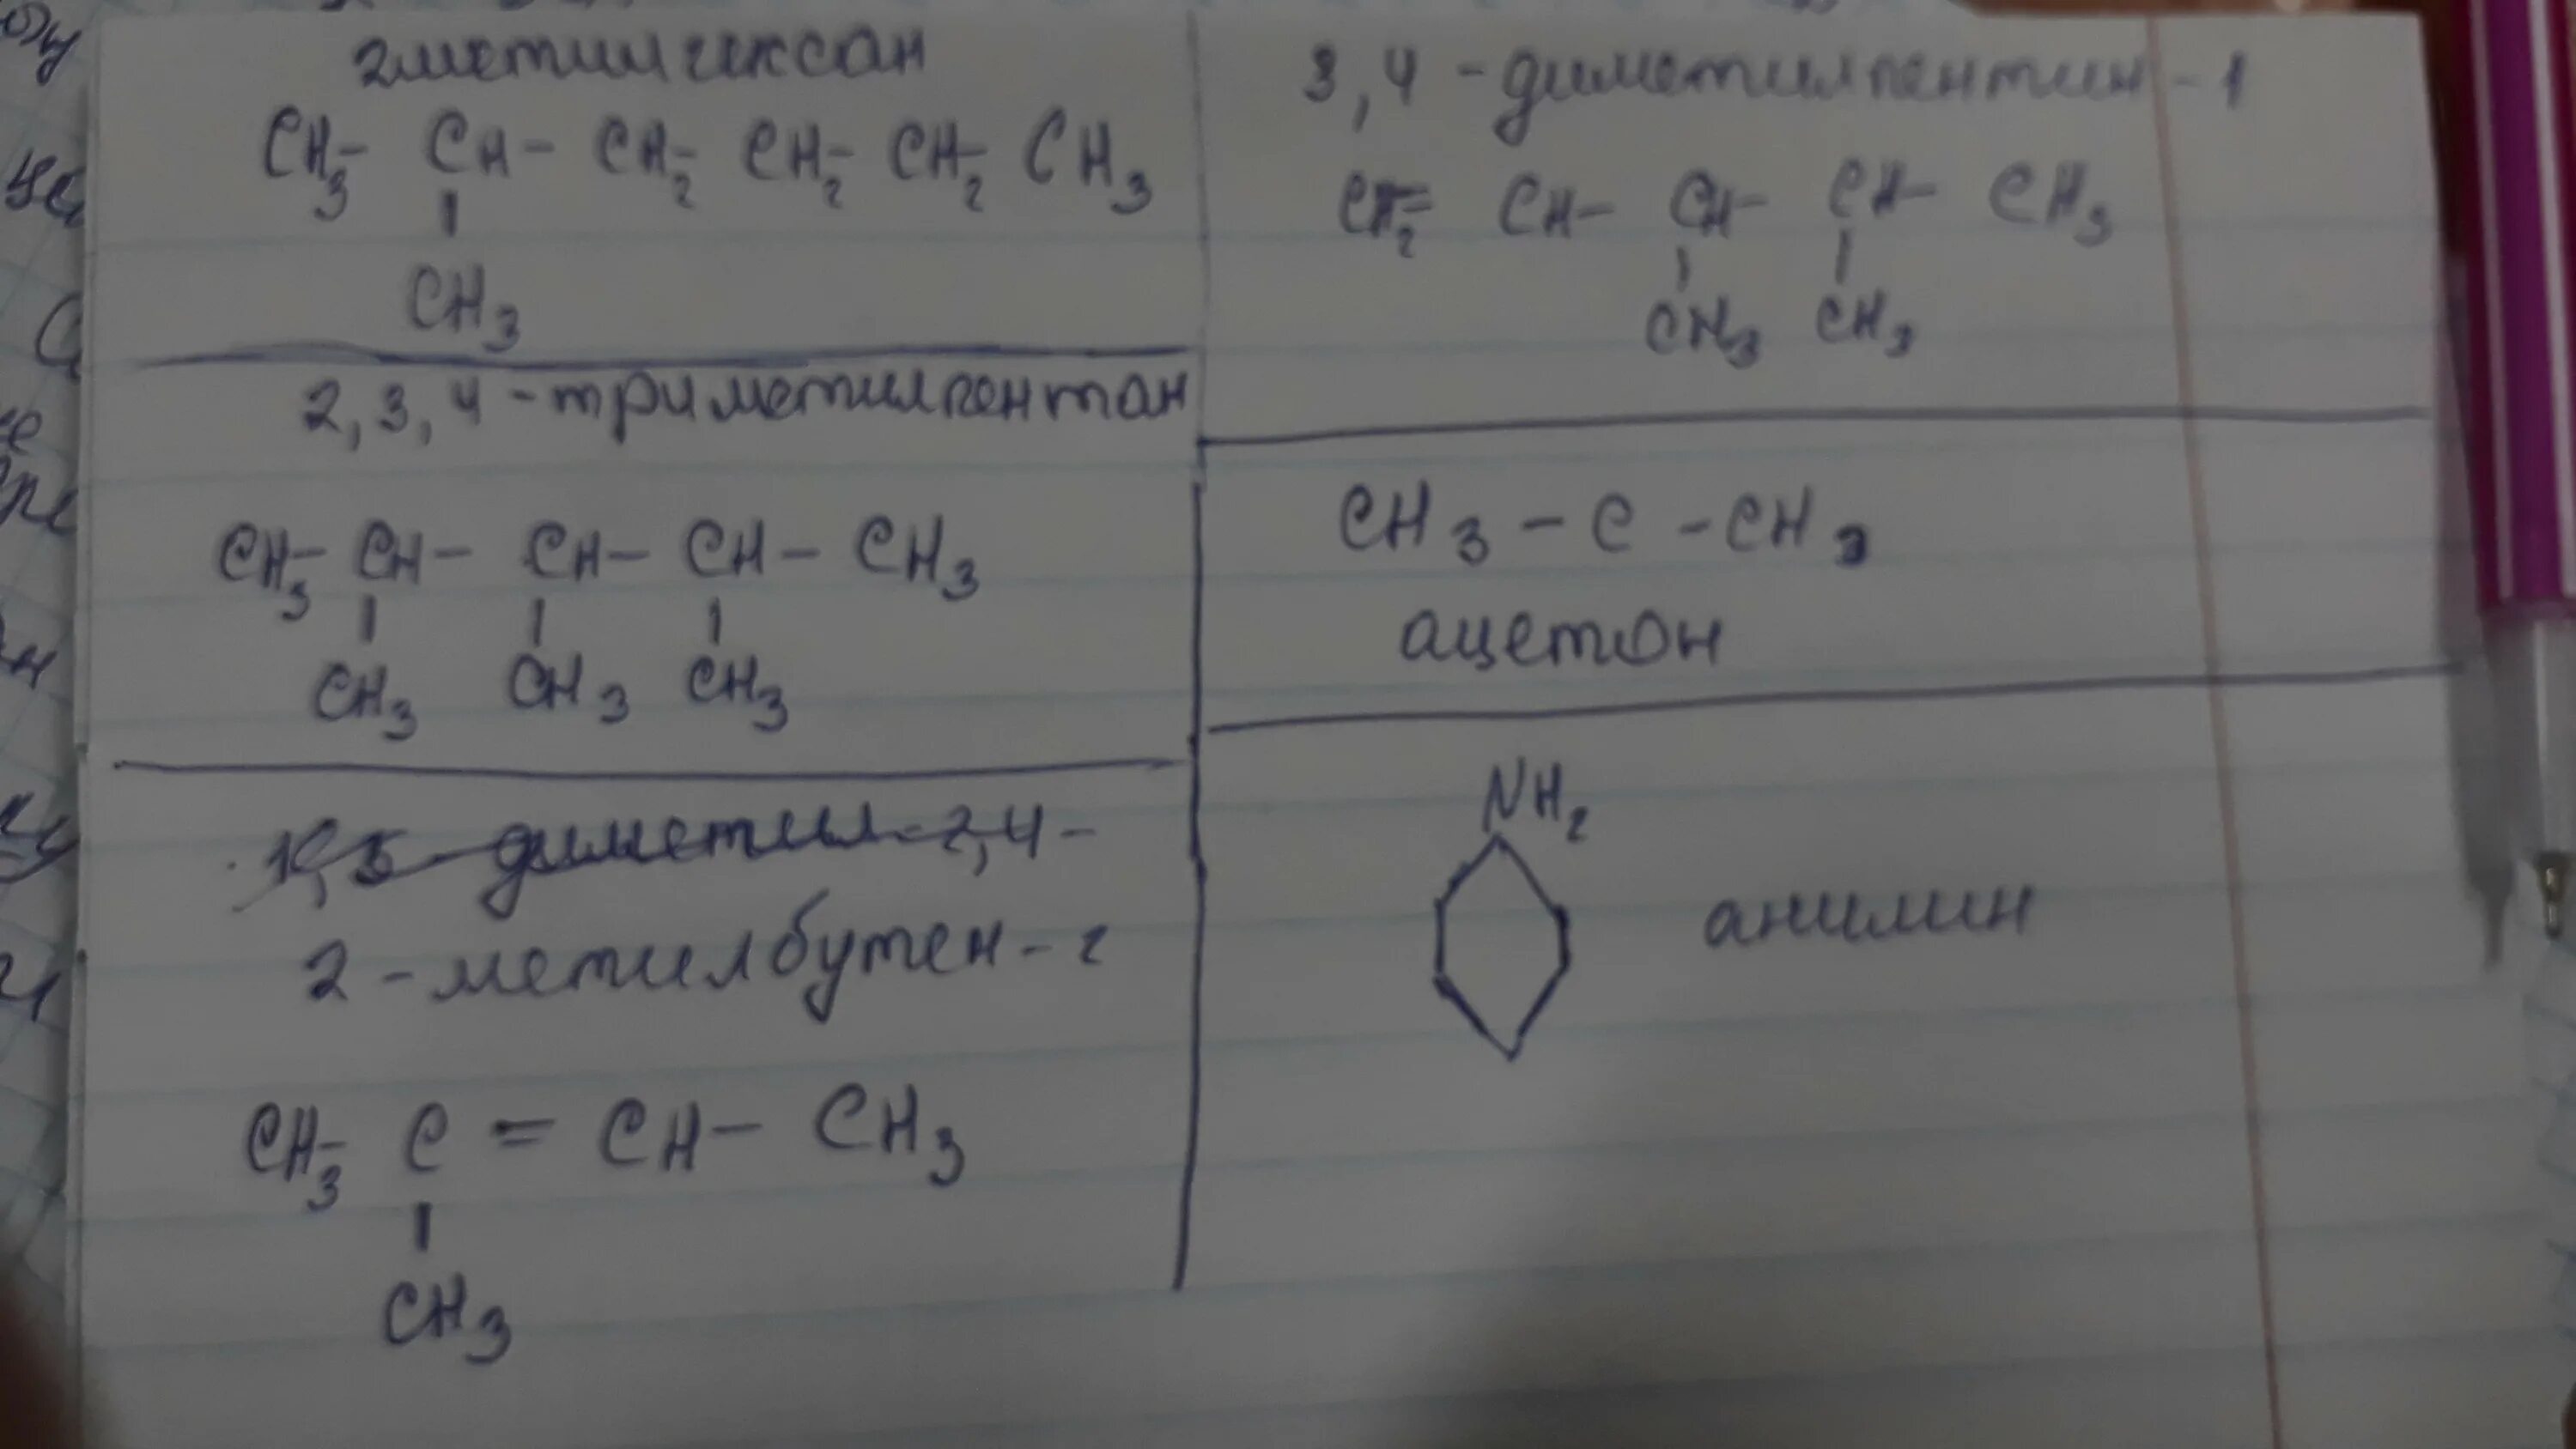 2метилгексан
CH3- CH- CH2- CH2- CH2- CH3
CH3
2,3,4-триметилпентан
CH3- CH- CH- CH- CH3
CH3 CH3 CH3
диметил-2,4-
2-метилбутен-2
CH3- C = CH- CH3
CH3
3,4-диметилпентин-1
CH2= CH- CH- CH- CH3
CH3 CH3
CH3-C-CH3
ацетон
NH2
анилин